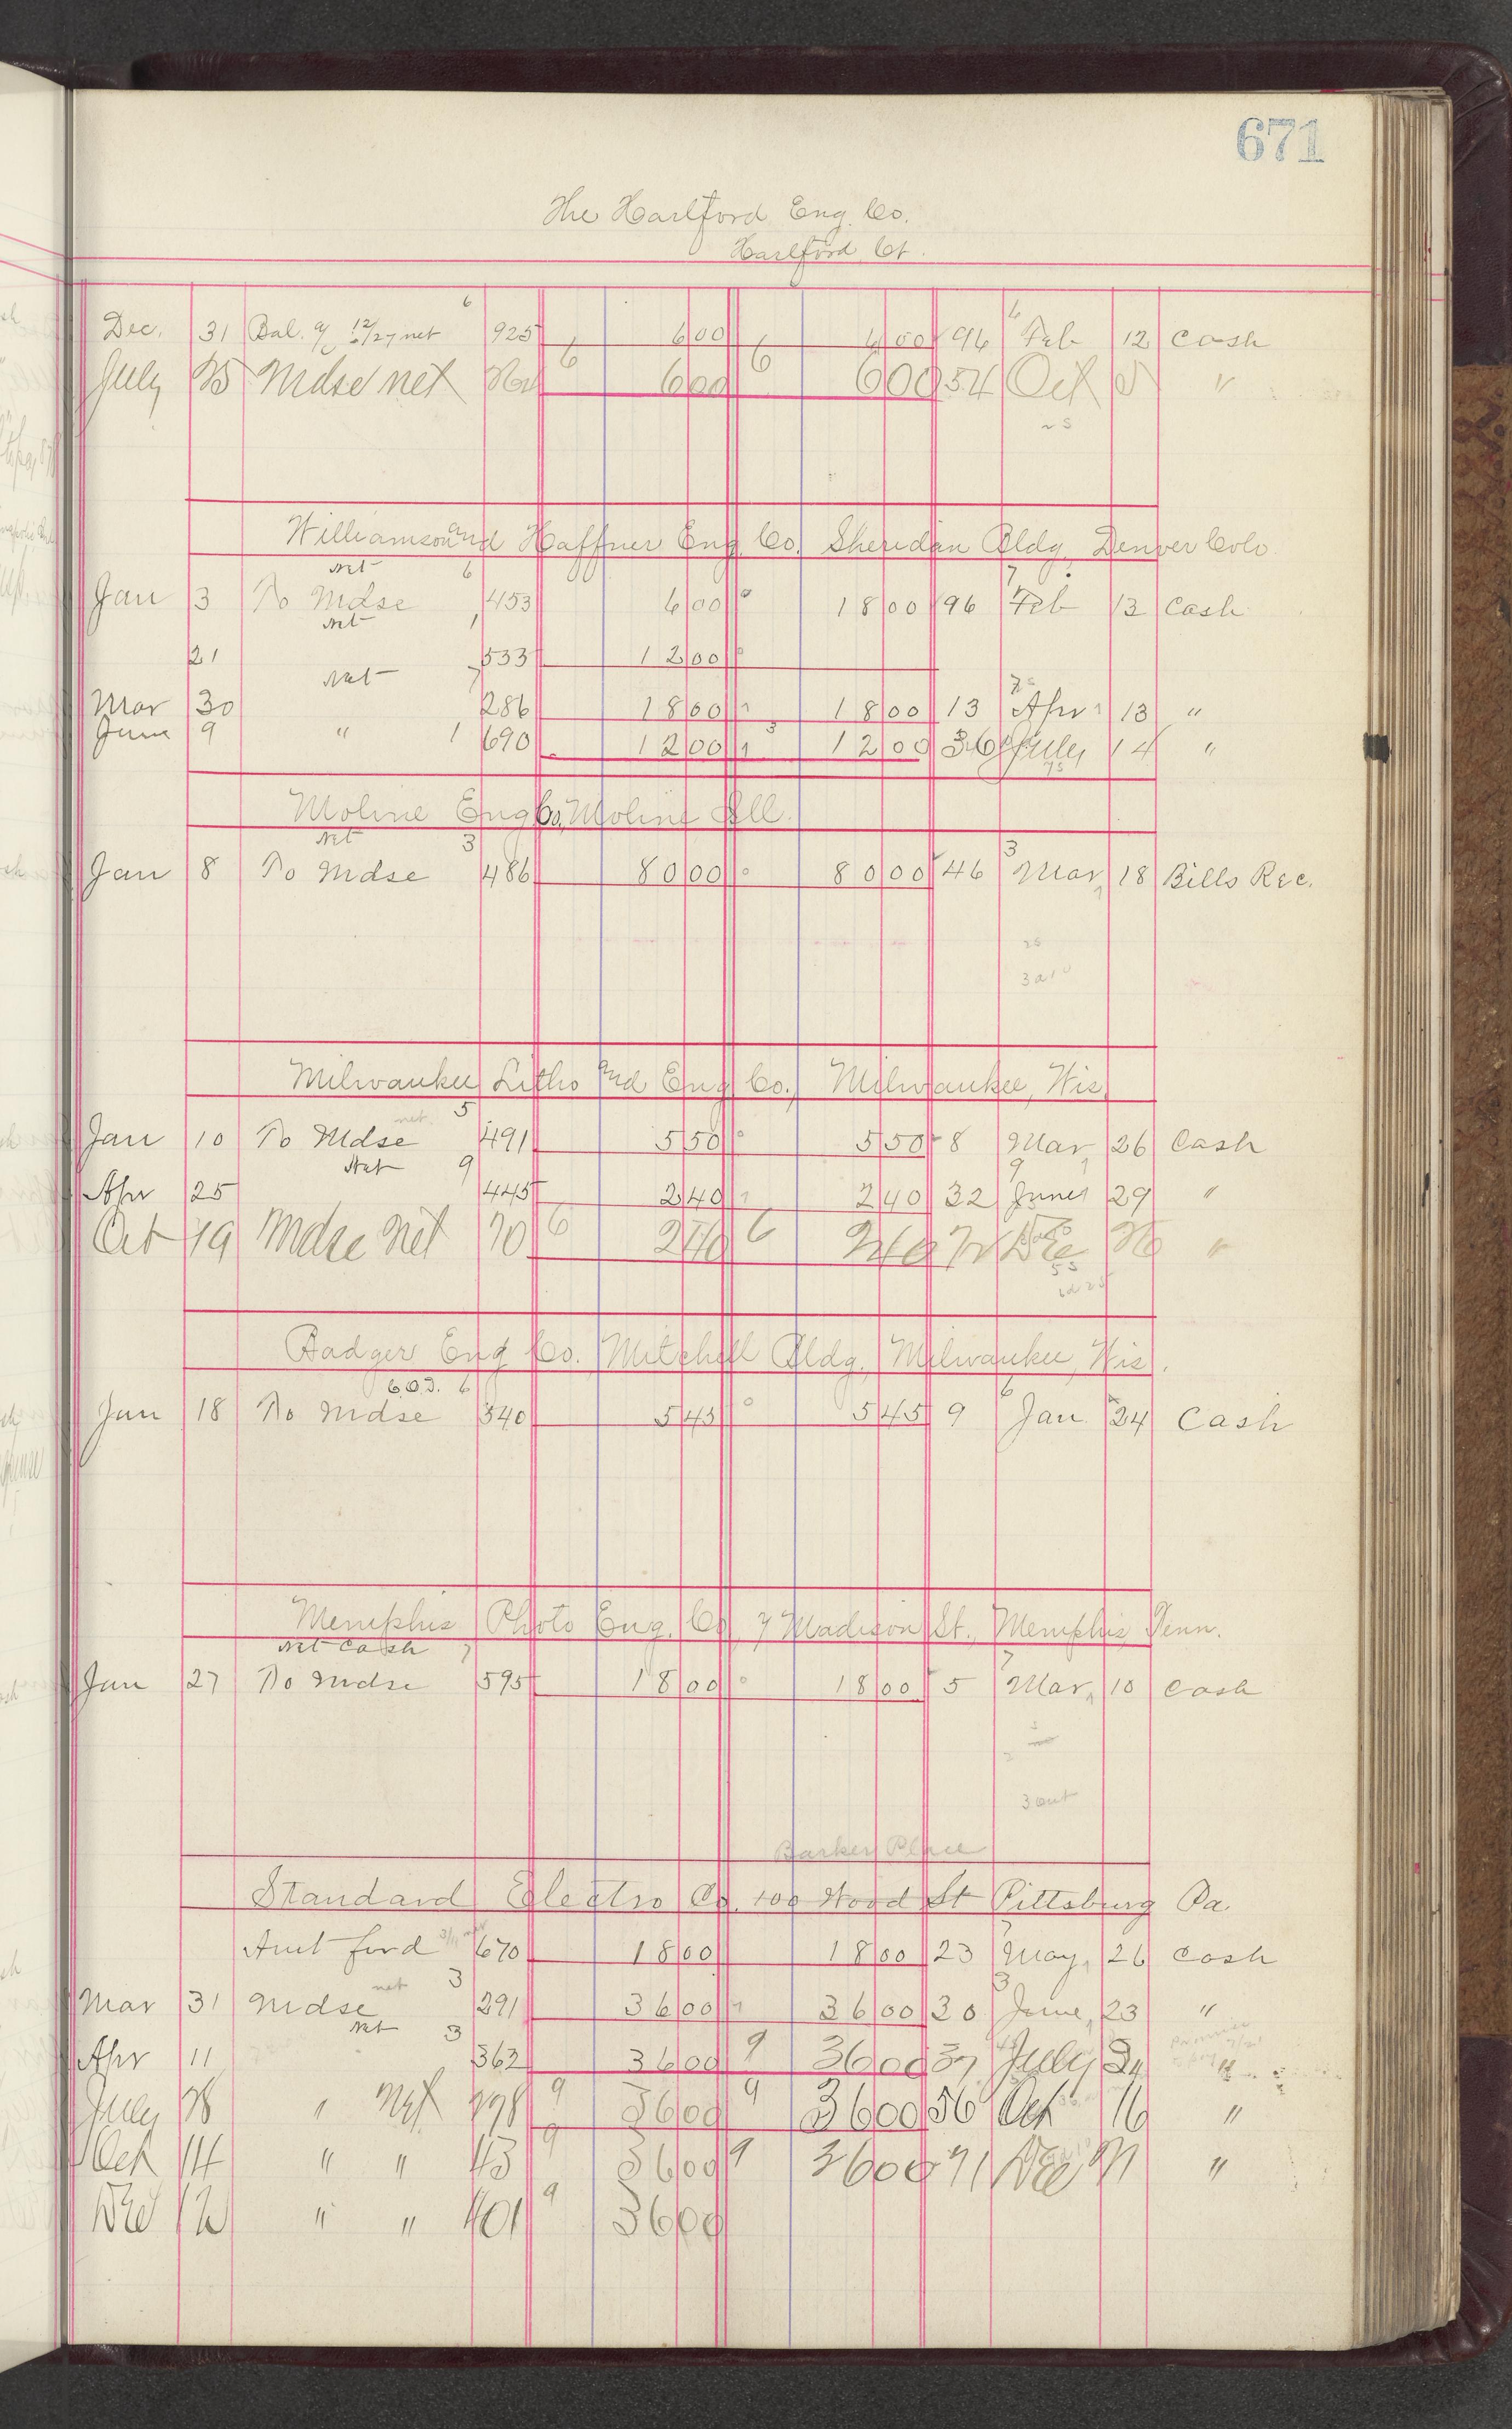 671
The Hartford Eng. Co.
Hartford Ct.
6 6
Dec. 31 Bal. a/c 12/27 net 925 6 00 6 00 94 Feb 12 Cash
July 25 Mdse net 6 6 00 6 6 00 54 Oct 5 "
Williamson and Haffner Eng. Co. Sheridan Bldg. Denver Colo
Net 6 7
Jan 3 To Mdse 453 6 00 18 00 96 Feb 13 Cash
Net 1
21 533 12 00
Net 7
Mar 30 286 18 00 18 00 13 Apr 13 "
June 9 " 1 690 12 00 3 12 00 36 July 14 "
Moline Eng Co, Moline Ill.
Net 3 3
Jan 8 To Mdse 486 80 00 80 00 46 Mar 18 Bills Rec.
Milwaukee Litho and Eng. Co., Milwaukee, Wis
net 5
Jan 10 To Mdse 491 5 50 5 50 8 Mar 26 Cash
Net 9 9
Apr 25 445 2 40 2 40 32 June 29 "
Oct 19 Mdse Net 70 6 2 40 6 2 40 72 Dec 26 "
Badger Eng Co. Mitchell Bldg. Milwaukee, Wis.
C.O.D. 6 6
Jan 18 To Mdse 540 5 45 5 45 9 Jan 24 Cash
Memphis Photo Eng. Co, 7 Madison St., Memphis, Tenn.
Net Cash 7 7
Jan 27 To Mdse 595 18 00 18 00 5 Mar, 10 Cash
Barker Place
Standard Electro Co. 100 Wood St Pittsburg Pa.
Amt ford 670 18 00 18 00 23 May, 26 Cash
net 3 3
Mar 31 Mdse 291 36 00 36 00 30 June, 23 "
Net 3
Apr 11 362 36 00 9 36 00 37 July 24 "
July 28 " Net 798 9 36 00 9 36 00 56 Oct 16 "
Oct 14 " " 43 9 36 00 9 36 00 71 Dec 21 "
Dec 12 " " 401 9 36 00